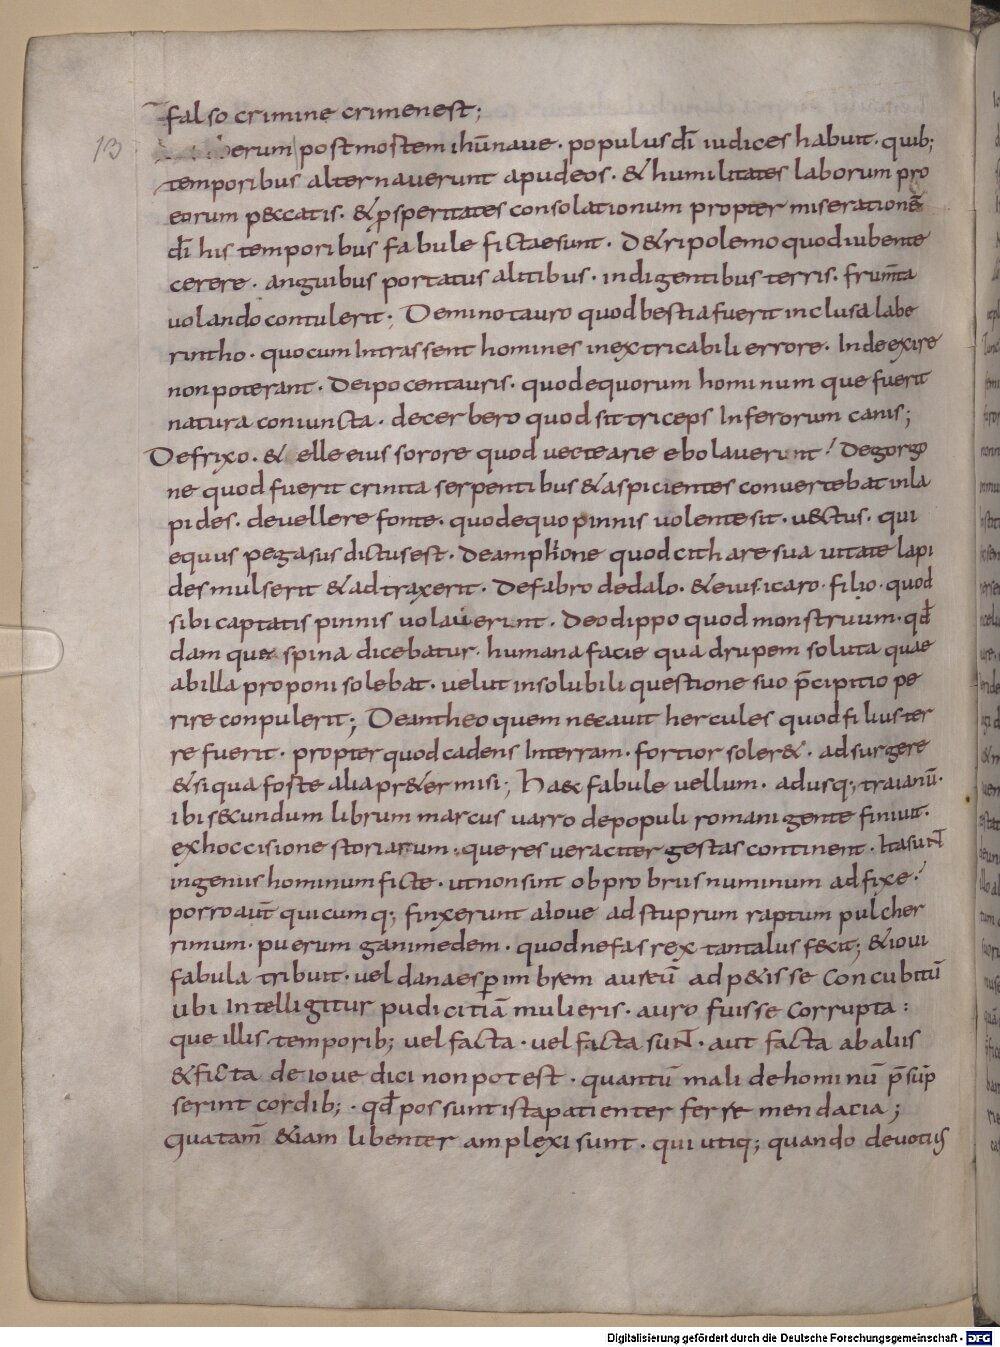 falso crimine crimen est;
13
erum post mostem ihū naue · populus dī iudices habuit · quib;
temporibus alternauerunt apud eos · & humilitates laborum pro
eorum peccatis · & ꝓsperitates consolationum propter miserationē
dī his temporibus fabule fictae sunt · De&ripolemo quod iubente
cerere · anguibus portatus alitibus · indigentibus terris · frum̄ta
uolando contulerit; De minotauro quod bestia fuerit inclusa labe
rintho · quo cum Intrassent homines inextricabili errore · Inde exire
non poterant · De ipocentauris · quod equorum hominum que fuerit
natura coniuncta · de cerbero quod sit triceps Inferorum canis;
De frixo · & elle eius sorore quod uecte arie ebolauerunt · De gorgo
ne quod fuerit crinita serpentibus & aspicientes conuertebat in la
pides · de uellerefonte · quod equo pinnis uolente sit · uectus · qui
equus pegasus dictus est · de amphione quod cithare sua uitate lapi
des mulserit & adtraxerit · De fabro dedalo · & eius icaro · filio · quod
sibi captatis pinnis uolauerunt · De odippo quod monstruum · qd̄
dam que spina dicebatur · humana facie quadrupem soluta quae
ab illa proponi solebat · uelut insolubili questione suo p̄cipitio pe
rire conpulerit; De antheo quem necauit hercules quod filius ter
re fuerit · propter quod cadens In terram · fortior soler& · adsurgere
& si qua foste alia pr&ermisi; Hae fabule uellum · ad usq; traianū ·
ibi secundum librum marcus uarro de populi romani gente finiuit ·
ex hoccisione storiarum · que res ueraciter gestas continent · Ita suNT
ingeniis hominum ficte · ut non sint obprobriis numinum adfixe ·
porro aut̄ quicumq; finxerunt a ioue ad stuprum raptum pulcher
rimum · puerum ganimedem · quod nefas rex tantalus fecit; & ioui
fabula tribuit · uel danaes ꝑ imbrem aureū adpetisse Concubitū
ubi Intelligitur pudicitiā mulieris · auro fuisse Corrupta :
que illis temporib; uel facta · uel ficta suNT · aut facta ab aliis
& ficta de ioue dici non potest · quantū mali de hominū p̄sūp
serint cordib; · qd̄ possunt ista patienter ferre mendacia;
Quatam̄ &iam libenter amplexi sunt · qui utiq; quando deuotius
Digitalisierung gefördert durch die Deutsche Forschungsgemeinschaft - DFG